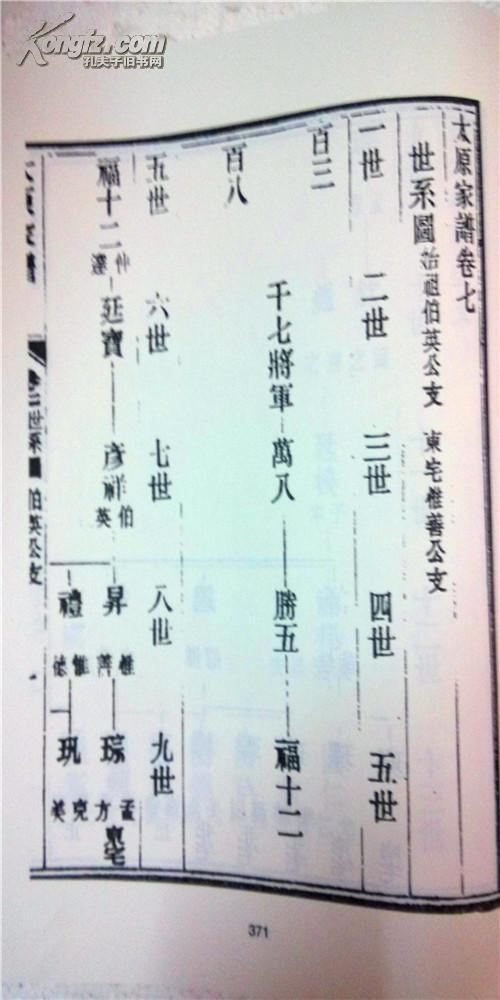 Kongfz.com
孔夫子旧书网
太原家譜卷七
世系圖 始祖伯英公支 東宅惟善公支
一世 二世 三世 四世 五世
百三 千七將軍 萬八 勝五 福十二
百八
五世 六世 七世 八世 九世
福十二 仲 廷寶 彦祥 伯英 昇 惟善 琮 孟方 東宅
禮 惟德 玑 克美
卷 世系圖 伯英公支
371